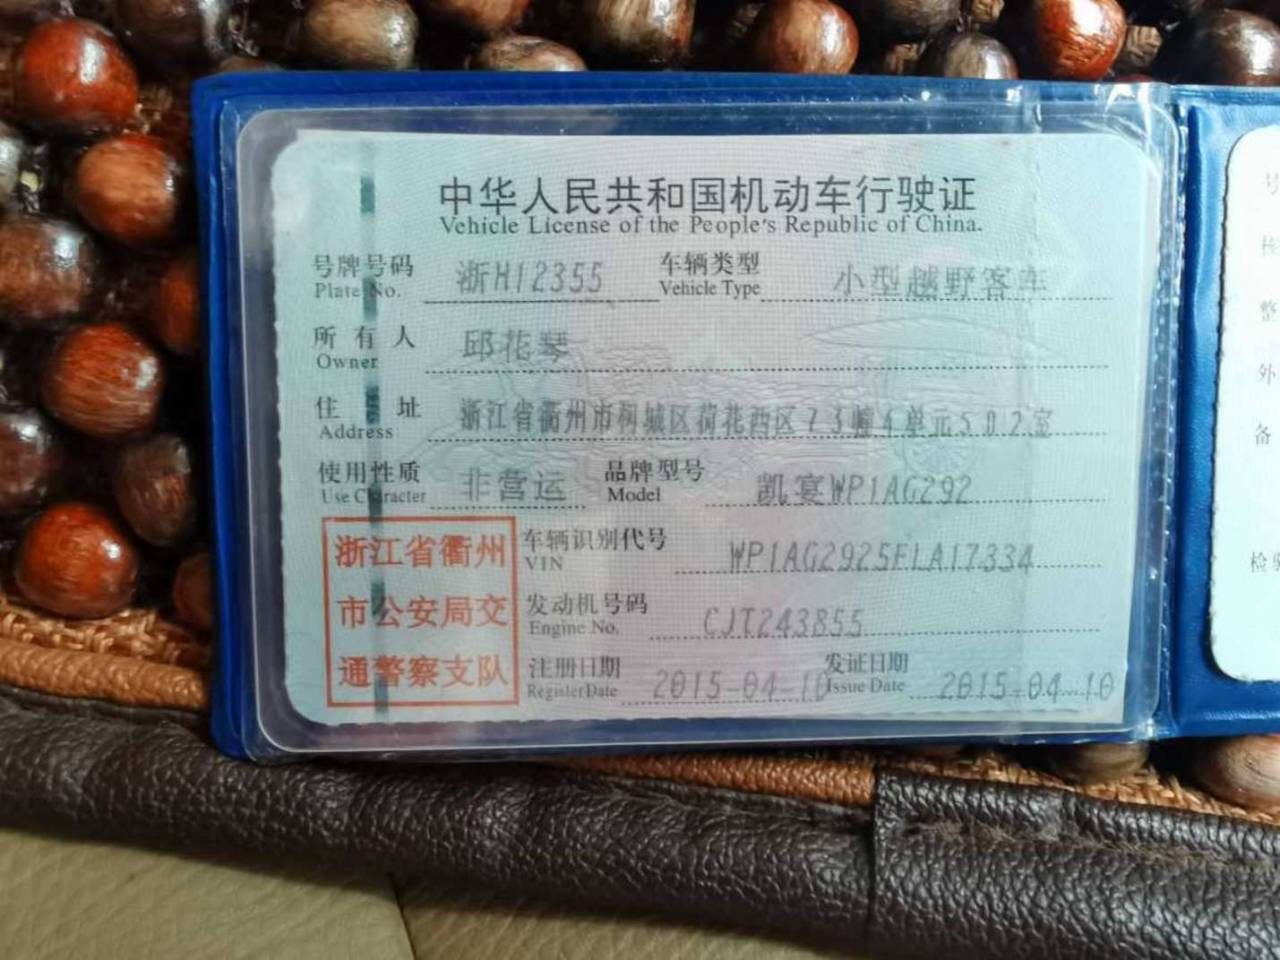 中华人民共和国机动车行驶证
Vehicle License of the People's Republic of China.
号牌号码 浙H12355 车辆类型 小型越野客车
Plate No. Vehicle Type
所有人 邱花琴
Owner
住址 浙江省衢州市柯城区荷花西区73幢4单元502室
Address
使用性质 非营运 品牌型号 凯宴WP1AG292
Use Character Model
浙江省衢州
市公安局交
通警察支队
车辆识别代号 WP1AG2925FLA17334
VIN
发动机号码 CJT243855
Engine No.
注册日期 2015-04-10 发证日期 2015-04-10
Register Date Issue Date
号
整
外
备
检验